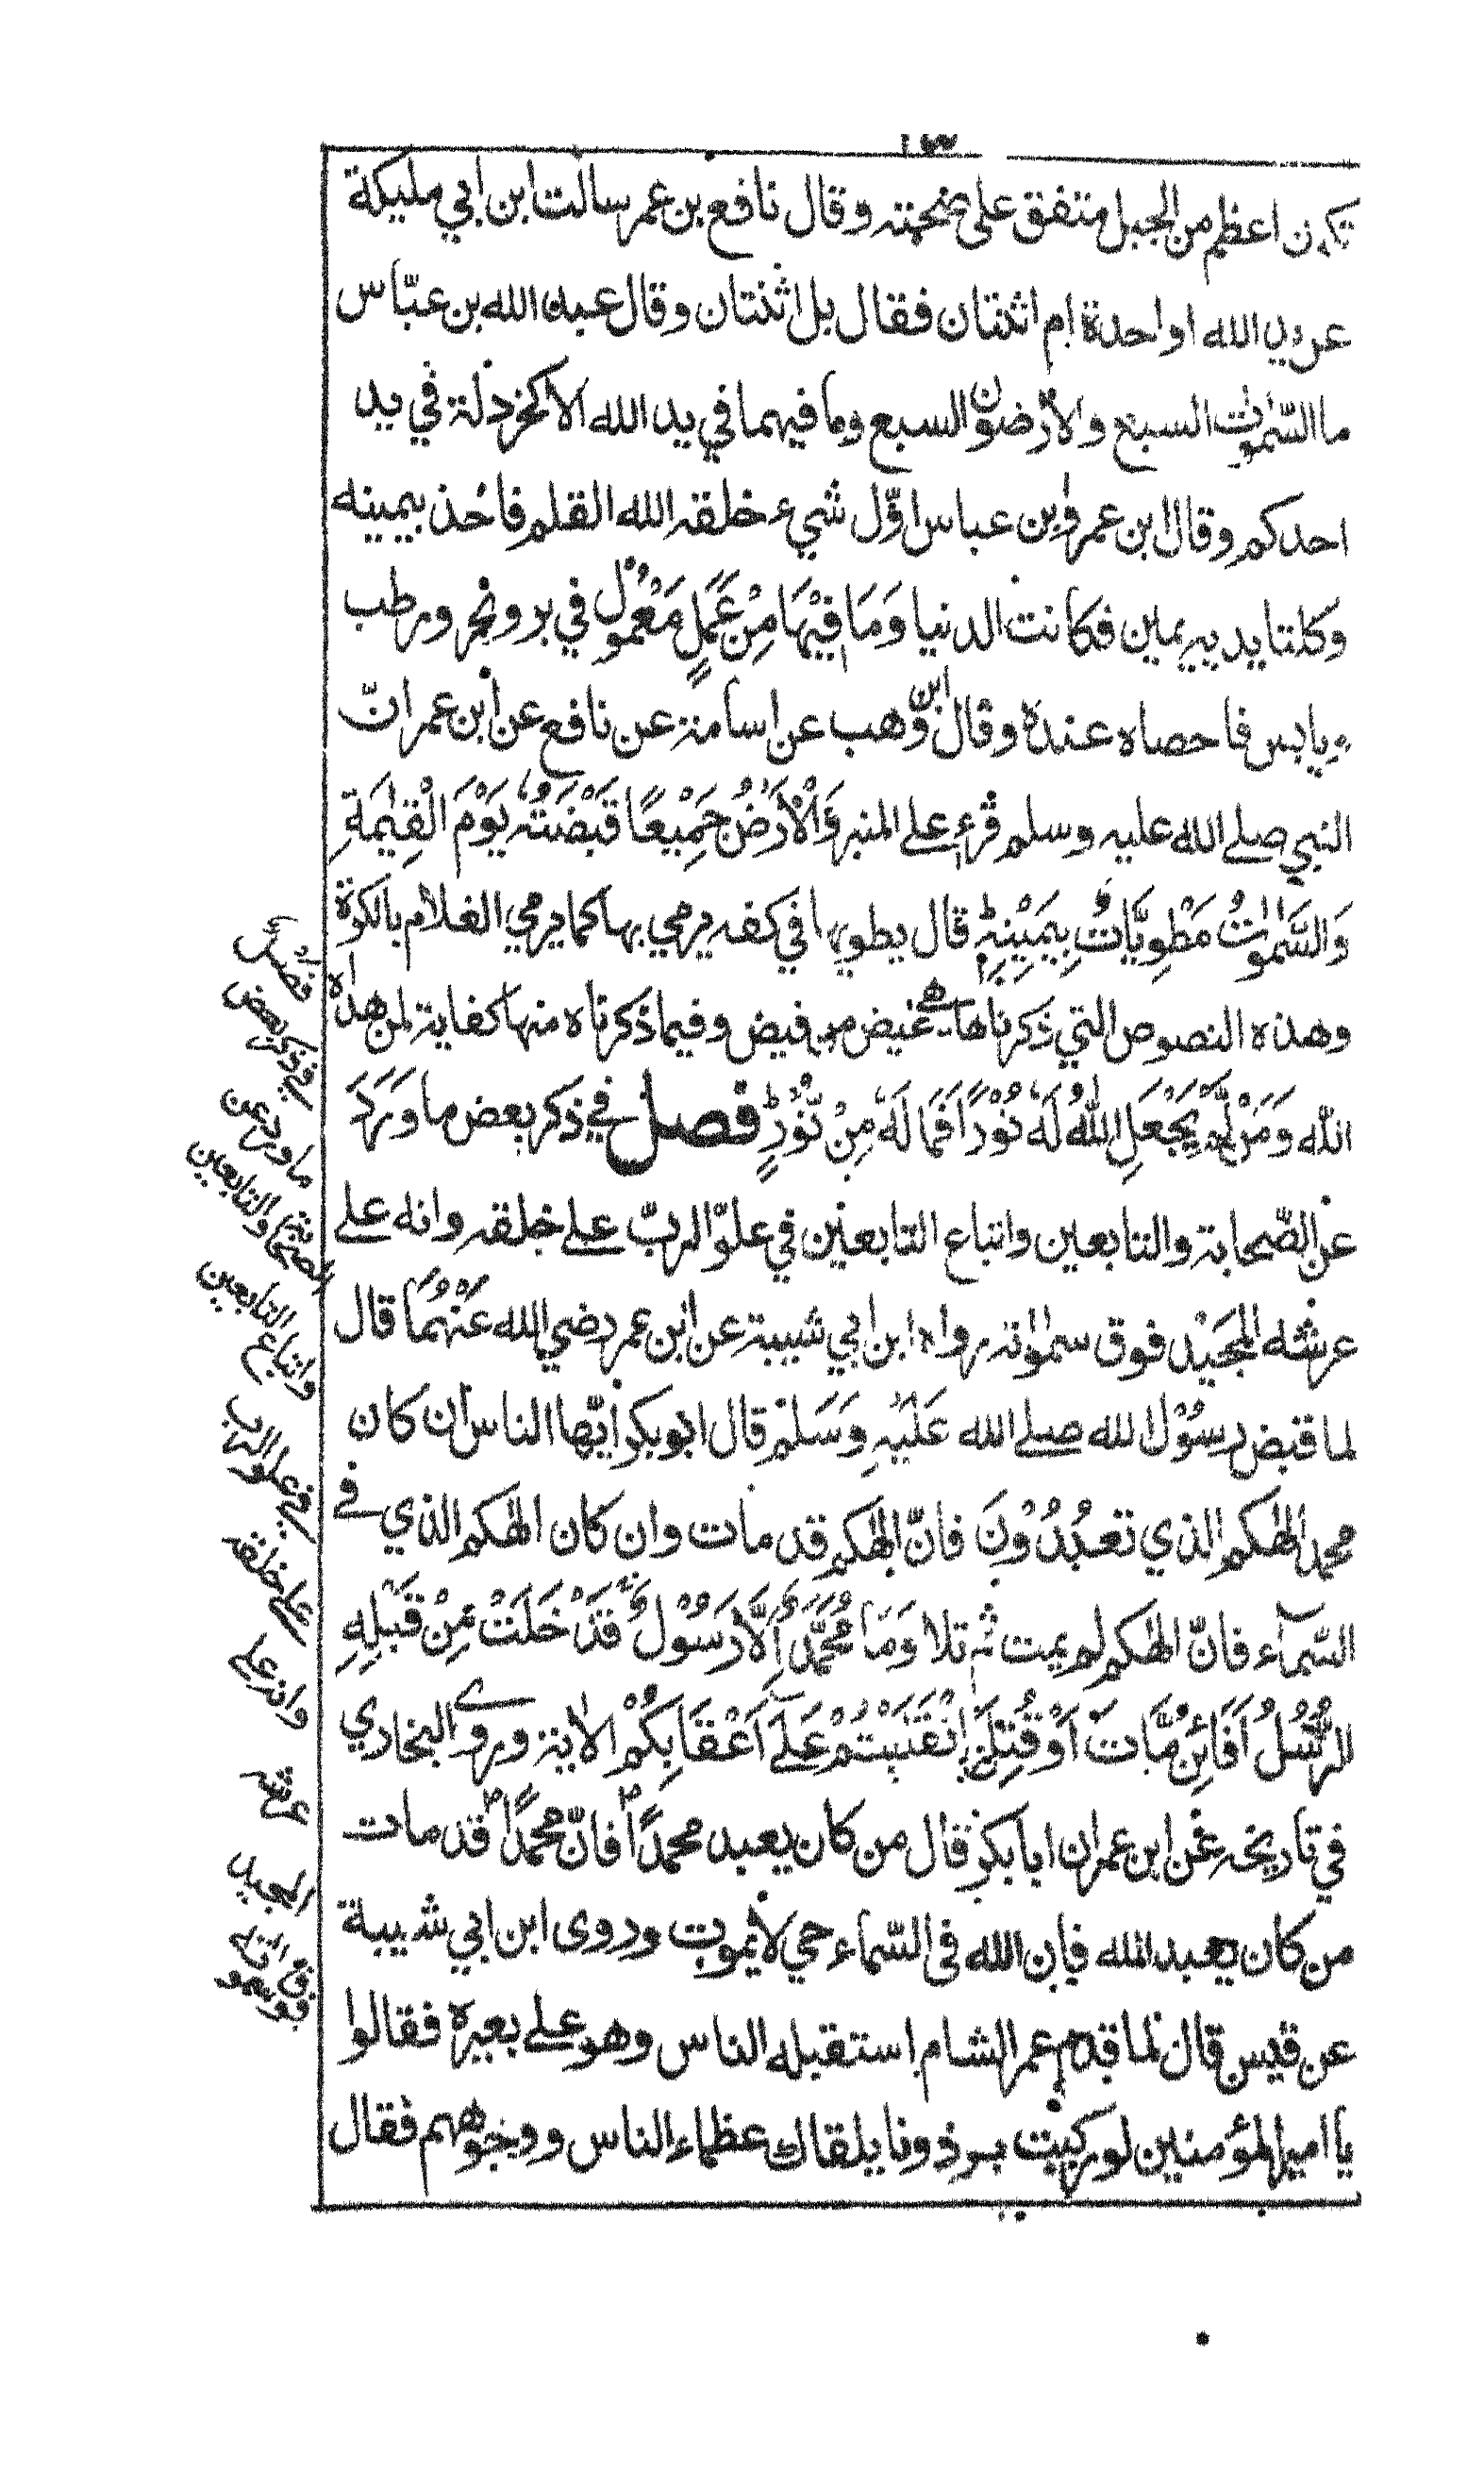 تكون اعظم من الجبل متفق على صحته وقال نافع بن عمر سالت ابن ابي مليكة
عن يد الله او احدة ام اثنتان فقال بل اثنتان وقال عبد الله بن عبّاس
ما السّموٰت السبع والأرضون السبع وما فيهما في يد الله الا كخردلة في يد
احدكم وقال ابن عمر وابن عباس اوّل شيء خلقه الله القلم فاخذ بيمينه
وكلتا يديه يمين فكانت الدنيا وَمَا فِيْهَا مِنْ عَمَلٍ مَعْمُولٍ في بر وبحر ورطب
ويابس فاحصاه عنده وقال ابن وهب عن اسامة عن نافع عن ابن عمر انّ
النبي صلے الله عليه وسلم قرء علے المنبر وَالْاَرْضُ جَمِيْعًا قَبْضَتُهٗ يَوْمَ الْقِيٰمَةِ
وَالسَّمٰوٰتُ مَطْوِيَّاتٌ بِيَمِيْنِهٖ قال يطويها في كفه يرمي بها كما يرمي الغلام بالكرة
وهذه النصوص التي ذكرناها هے غيض من فيض وفيما ذكرناه منها كفاية لمن هداه
الله وَمَنْ لَّمْ يَجْعَلِ اللّٰهُ لَهٗ نُوْرًا فَمَا لَهٗ مِنْ نُّوْرٍ فصل في ذكر بعض ما وَرَدَ
عن الصّحابة والتابعين واتباع التابعين في علوّ الربّ علے خلقه وانه علے
عرشه المجيد فوق سمٰوٰته رواه ابن ابي شيبة عن ابن عمر رضي الله عَنْهُمَا قال
لما قبض رسُوْل الله صلے الله عَلَيْهِ وَسَلَمْ قال ابو بكر ايّها الناس ان كان
محمد الٰهكم الذي تعبُدُوْنَ فانّ الٰهكم قد مات وان كان الٰهكم الذي في
السّمآء فانّ الٰهكم لم يمت ثم تلا وَمَا مُحَمَّدٌ اِلَّا رَسُوْلٌ قَدْ خَلَتْ مِنْ قَبْلِهِ
الرُّسُلُ اَفَائِنْ مَّاتَ اَوْ قُتِلَ انْقَلَبْتُمْ عَلٰٓے اَعْقَابِكُمْ الاٰية وروے البخاري
في تاريخه عن ابن عمر ان ابا بكر قال من كان يعبد محمدًا فانّ محمدًا قد مات
من كان يعبد الله فان الله فى السّماء حي لا يموت وروى ابن ابي شيبة
عن قيس قال لما قدم عمر الشام استقبله الناس وهو علے بعيره فقالوا
يا امير المؤمنين لو ركبت برذونا يلقاك عظماء الناس ووجوههم فقال
فصل
في ذكر بعض
ما ورد عن
الصحابة والتابعين
واتباع التابعين
في علو الرب
على خلقه
وانه على
عرشه
المجيد
فوق سموٰته